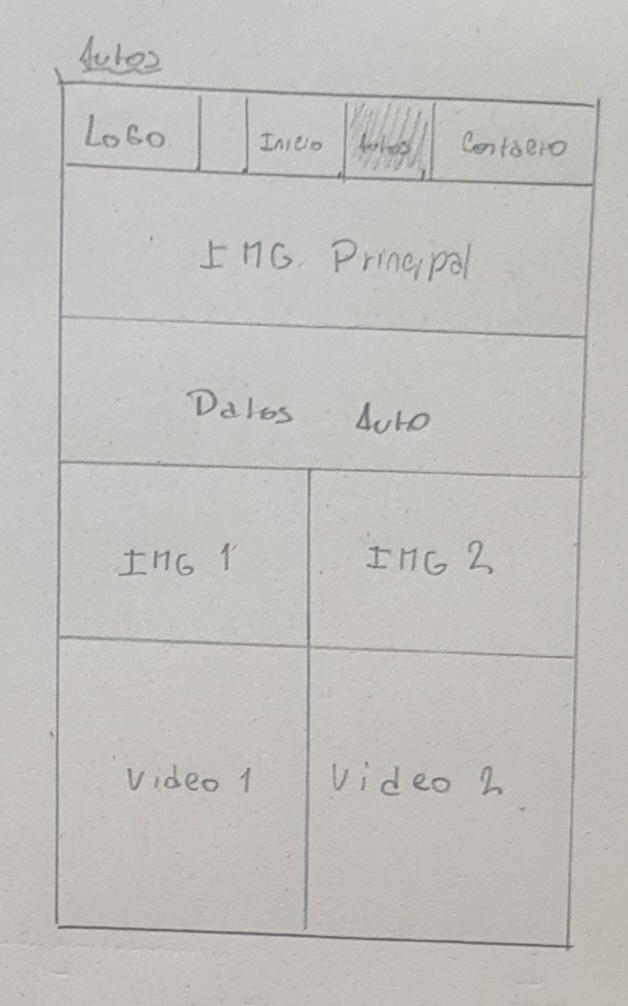 Autos
LOGO Inicio Autos Contacto
IMG. Principal
Datos Auto
IMG 1 IMG 2
Video 1 Video 2